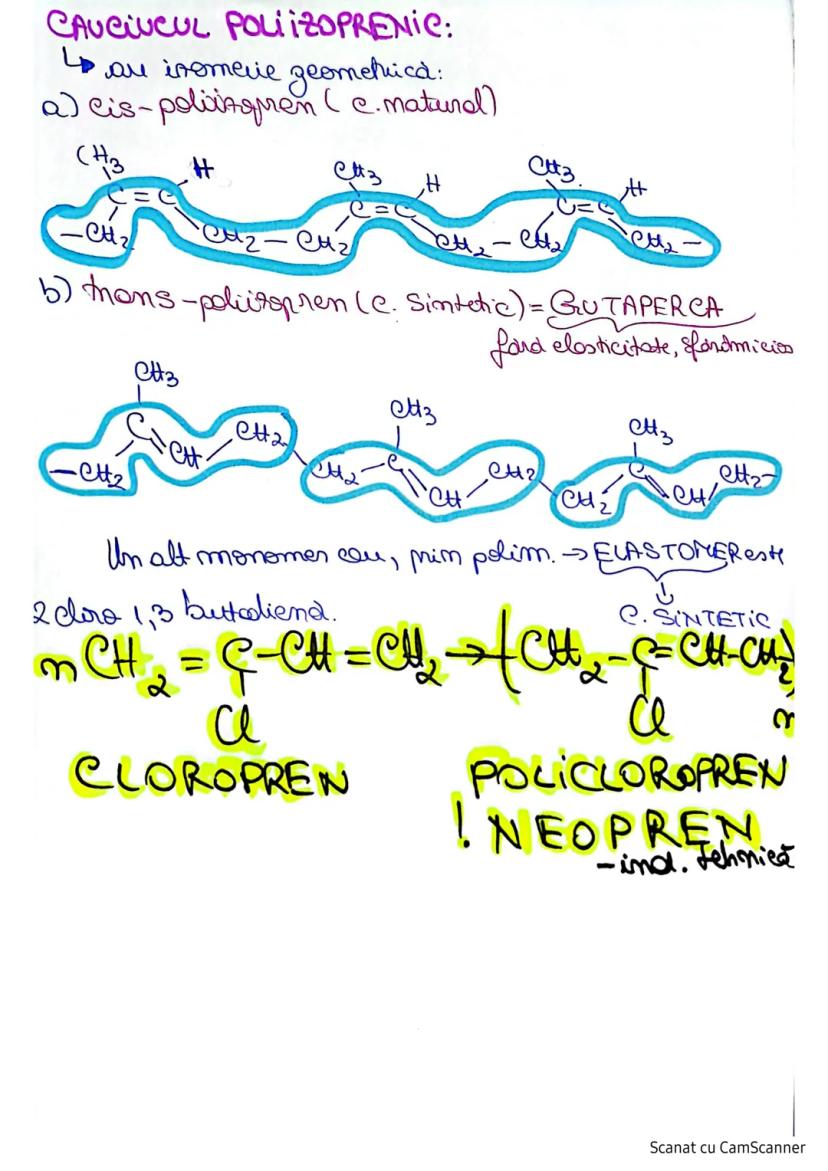 CAUCIUCUL POLIIZOPRENIC:
↳ au izomerie geometrică:
a) cis-poliizopren (c. natural)
CH3 H CH3 H CH3 H
C = C C = C C = C
—CH2 CH2 — CH2 CH2 — CH2 CH2 —
b) trans-poliizopren (c. Sintetic) = GUTAPERCA
fără elasticitate, sfărâmicios
CH3 CH3 CH3
C CH2 C CH2 C CH2—
—CH2 CH CH2 CH CH2 CH
Un alt monomer cau, prim polim. → ELASTOMER este
2 cloro 1,3 butadienă. C. SINTETIC
n CH2 = C – CH = CH2 → ( CH2 – C = CH – CH2 )n
Cl Cl
CLOROPREN POLICLOROPREN
! NEOPREN
– ind. tehnică
Scanat cu CamScanner